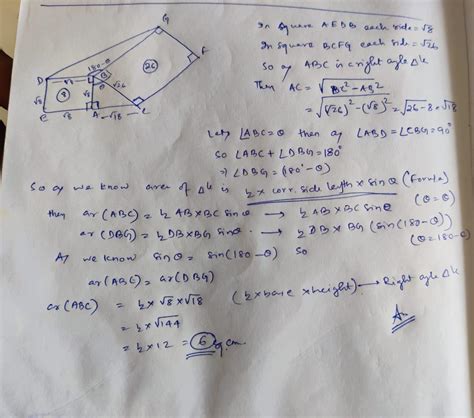 G
180-θ
F
D
B
θ
√26
26
√8
8
√8
√8
E
√8
A
√18
C
In square AEDB each side = √8
In square BCFG each side = √26
So as ABC is a right agle Δle
Then AC = √BC² - AB²
= √(√26)² - (√8)² = √26-8 = √18
Let ∠ABC = θ then as ∠ABD = ∠CBG = 90°
So ∠ABC + ∠DBG = 180°
⇒ ∠DBG = (180° - θ)
So as we know area of Δle is ½ × corr. side length × sin θ (Formula)
then ar(ABC) = ½ AB × BC sin θ → ½ AB × BC sin θ (θ = θ)
ar(DBG) = ½ DB × BG sin θ → ½ DB × BG (sin(180-θ)) (θ = 180-θ)
As we know sin θ = sin(180-θ) So
ar(ABC) = ar(DBG)
ar(ABC) = ½ × √8 × √18 (½ × base × height) → Right agle Δle
= ½ × √144
= ½ × 12 = 6 sq.cm.
An